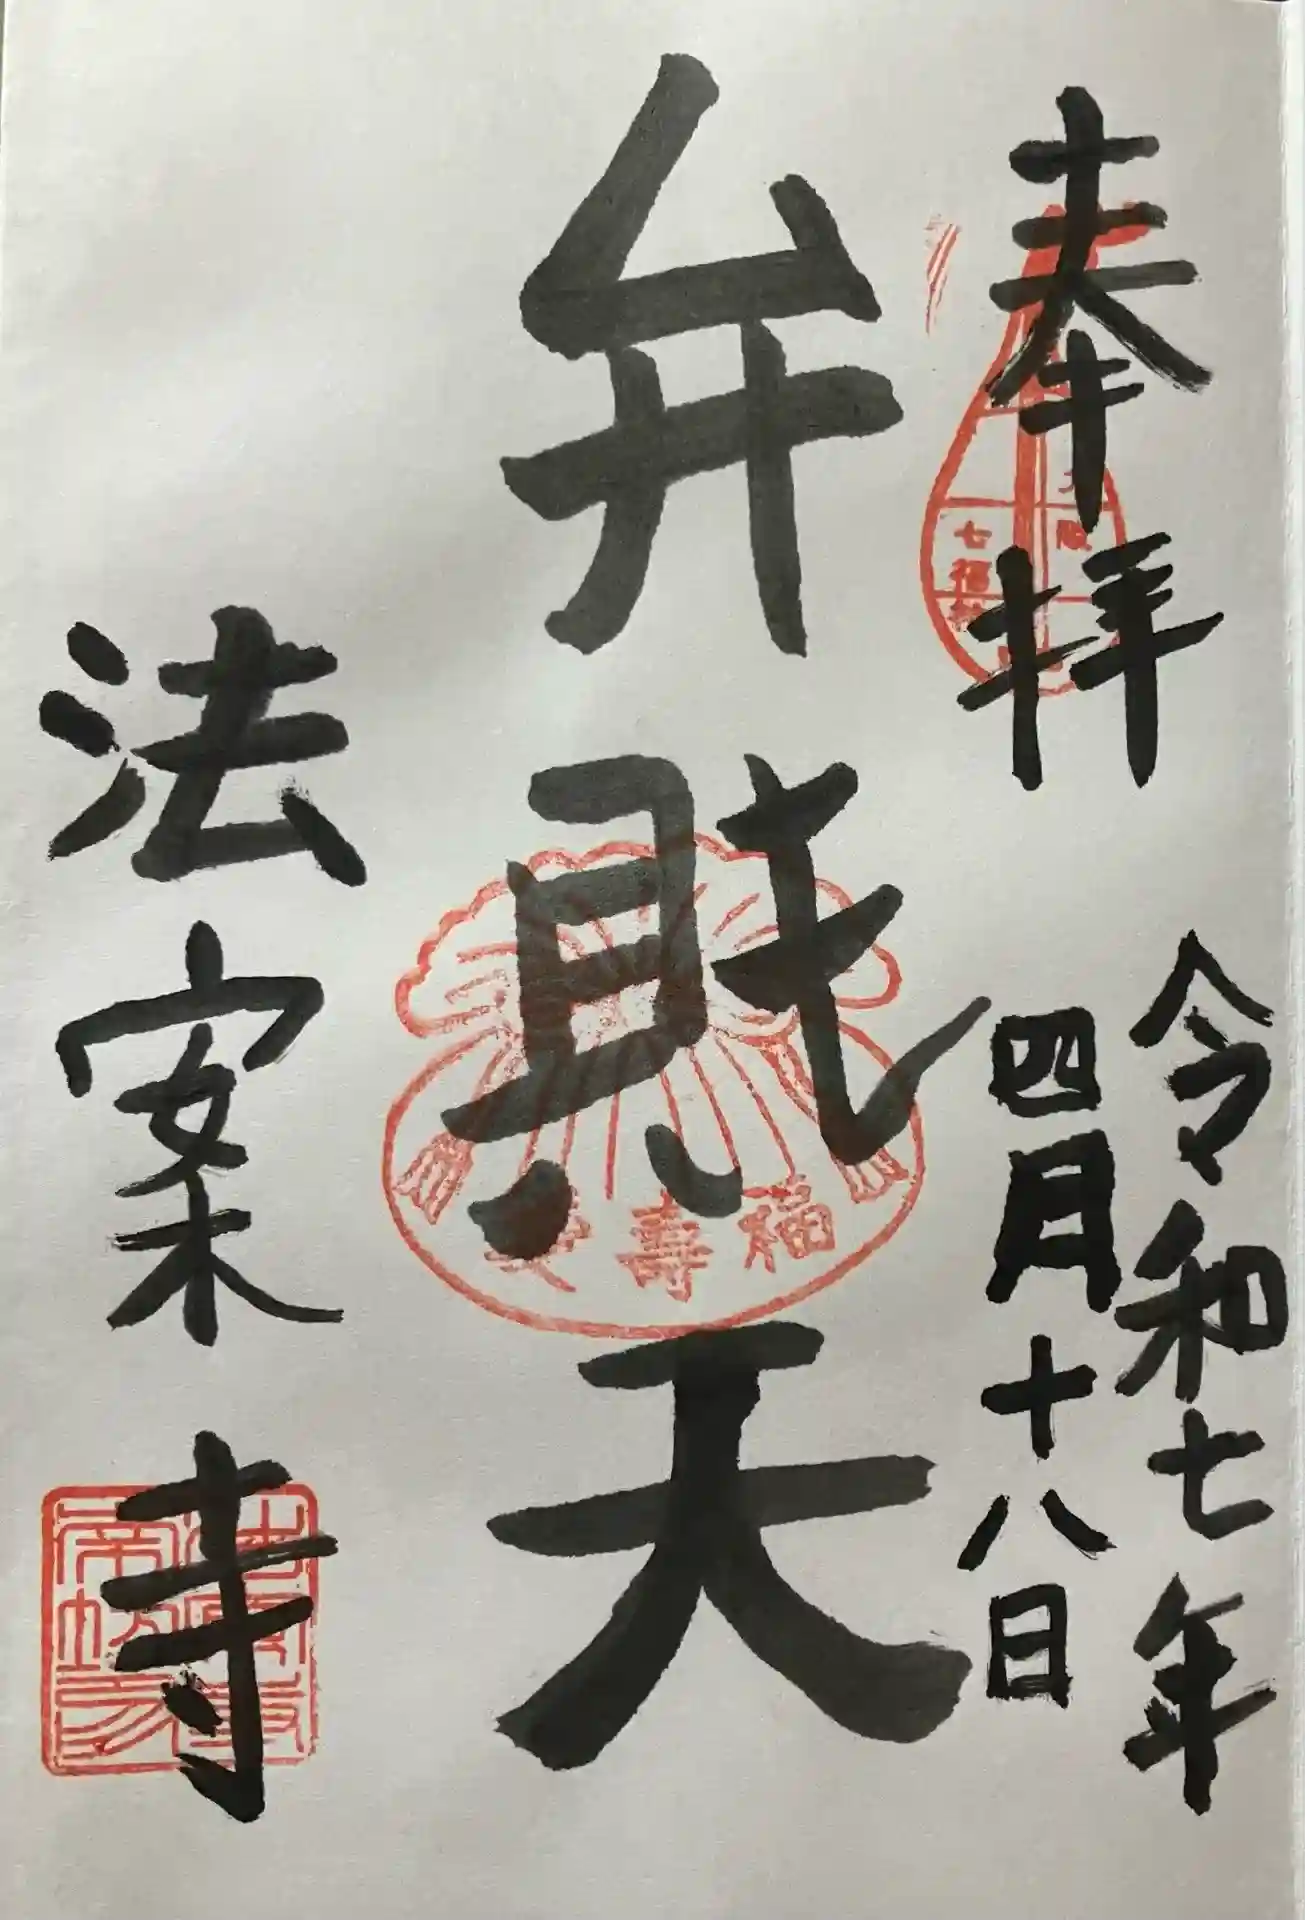 奉拝
令和七年
四月十八日
弁財天
法案寺
七福
福寿